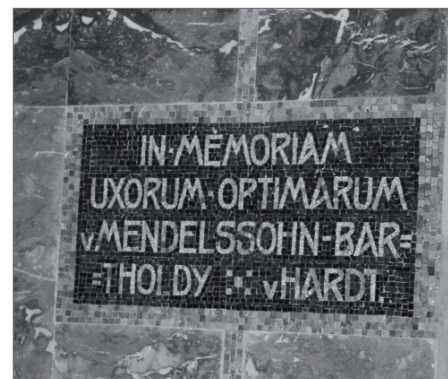 IN·MEMORIAM
UXORUM·OPTIMARUM
vMENDELSSOHN-BAR=
=THOLDY ⁙ vHARDT.